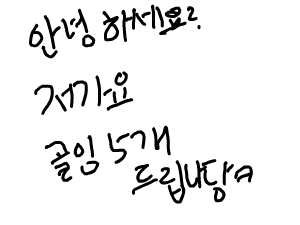 안녕하세요?
저기요
골임 5개
드립니당ㅋ